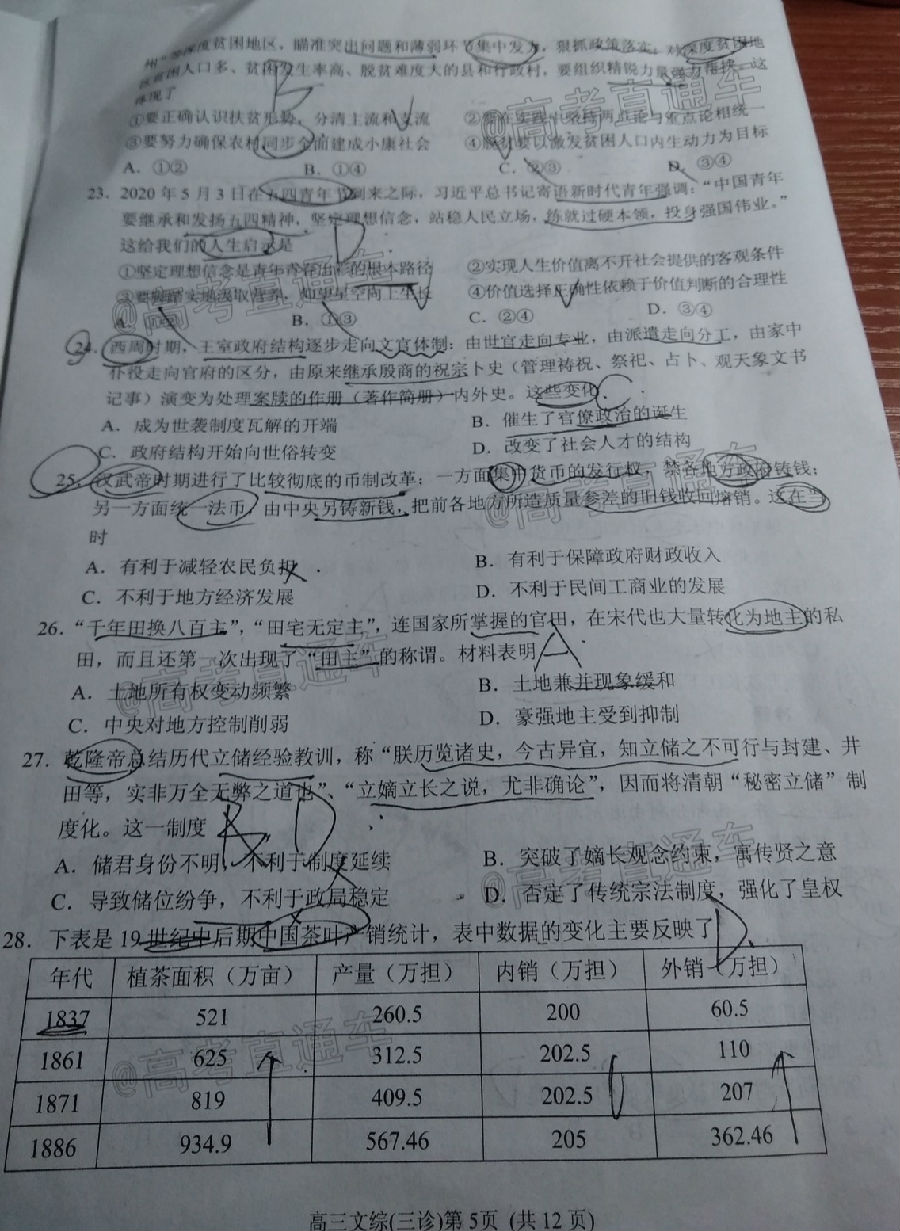 州”等深度贫困地区，瞄准突出问题和薄弱环节集中发力，狠抓政策落实；对深度贫困地
区贫困人口多、贫困发生率高、脱贫难度大的县和行政村，要组织精锐力量强力帮扶。这
体现了
①要正确认识扶贫形势，分清主流和支流 ②要在实践中坚持两点论与重点论相统一
③要努力确保农村同步全面建成小康社会 ④脱贫要以激发贫困人口内生动力为目标
A．①② B．①④ C．②③ D．③④
23．2020 年 5 月 3 日在五四青年节到来之际，习近平总书记寄语新时代青年强调：“中国青年
要继承和发扬五四精神，坚定理想信念，站稳人民立场，练就过硬本领，投身强国伟业。”
这给我们的人生启示是
①坚定理想信念是青年青春出彩的根本路径 ②实现人生价值离不开社会提供的客观条件
③要脚踏实地汲取营养，仰望星空向上生长 ④价值选择正确性依赖于价值判断的合理性
A．①② B．①③ C．②④ D．③④
24．西周时期，王室政府结构逐步走向文官体制：由世官走向专业，由派遣走向分工，由家中
仆役走向官府的区分，由原来继承殷商的祝宗卜史（管理祷祝、祭祀、占卜、观天象文书
记事）演变为处理案牍的作册（著作简册）内外史。这些变化
A．成为世袭制度瓦解的开端 B．催生了官僚政治的诞生
C．政府结构开始向世俗转变 D．改变了社会人才的结构
25．汉武帝时期进行了比较彻底的币制改革：一方面集中货币的发行权，禁各地方政府铸钱；
另一方面统一法币，由中央另铸新钱，把前各地方所造质量参差的旧钱收回熔销。这在当
时
A．有利于减轻农民负担 B．有利于保障政府财政收入
C．不利于地方经济发展 D．不利于民间工商业的发展
26．“千年田换八百主”，“田宅无定主”，连国家所掌握的官田，在宋代也大量转化为地主的私
田，而且还第一次出现了“田主”的称谓。材料表明 A
A．土地所有权变动频繁 B．土地兼并现象缓和
C．中央对地方控制削弱 D．豪强地主受到抑制
27．乾隆帝总结历代立储经验教训，称“朕历览诸史，今古异宜，知立储之不可行与封建、井
田等，实非万全无弊之道也”、“立嫡立长之说，尤非确论”，因而将清朝“秘密立储”制
度化。这一制度
A．储君身份不明，不利于制度延续 B．突破了嫡长观念约束，寓传贤之意
C．导致储位纷争，不利于政局稳定 D．否定了传统宗法制度，强化了皇权
28．下表是 19 世纪中后期中国茶叶产销统计，表中数据的变化主要反映了 D
年代 植茶面积（万亩） 产量（万担） 内销（万担） 外销（万担）
1837 521 260.5 200 60.5
1861 625 312.5 202.5 110
1871 819 409.5 202.5 207
1886 934.9 567.46 205 362.46
高三文综(三诊)第 5页 (共 12 页)
@高考直通车
@高考直通车
@高考直通车
@高考直通车
@高考直通车
@高考直通车